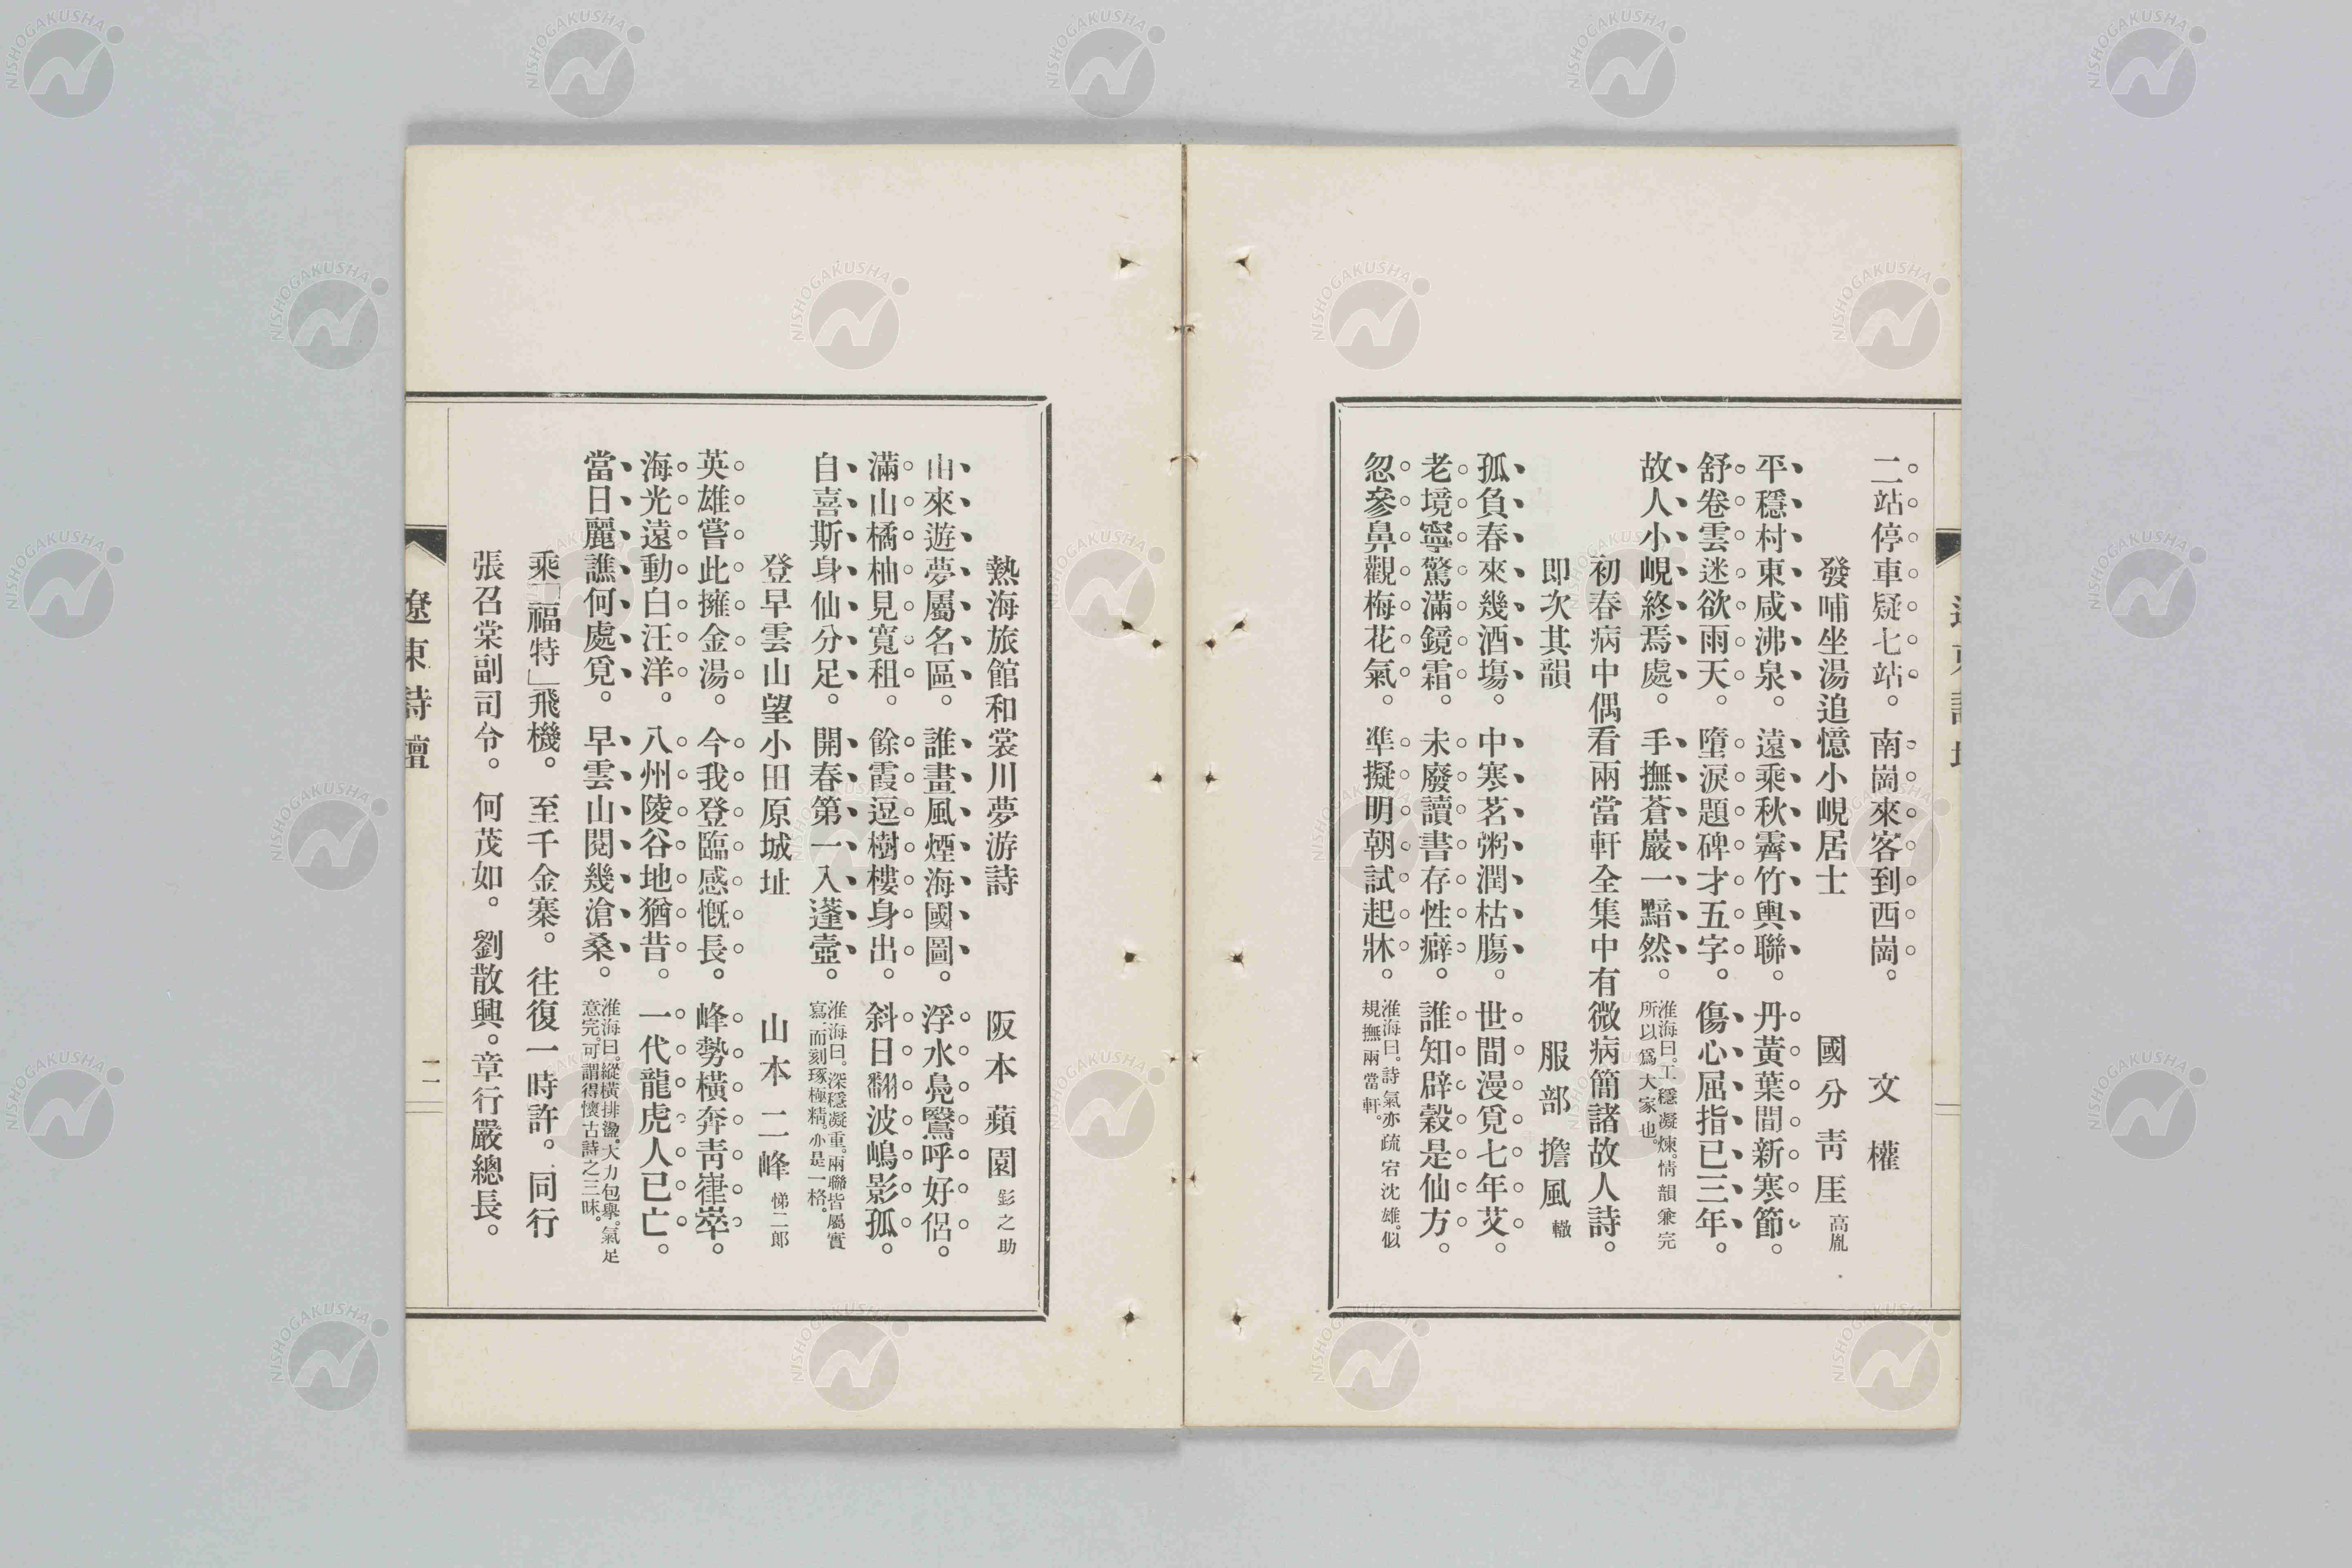 二站停車疑七站。南崗來客到西崗。 文權
發哺坐湯追憶小峴居士 國分靑厓 高胤
平穩村東咸沸泉。遠乘秋霽竹輿聯。丹黃葉間新寒節。
舒卷雲迷欲雨天。墮淚題碑才五字。傷心屈指已三年。
故人小峴終焉處。手撫蒼巖一黯然。 淮海曰。工穩凝煉。情韻兼完
所以爲大家也。
初春病中偶看兩當軒全集中有微病簡諸故人詩。
即次其韻 服部擔風 轍
孤負春來幾酒塲。中寒茗粥潤枯腸。世間漫覓七年艾。
老境寧驚滿鏡霜。未廢讀書存性癖。誰知辟穀是仙方。
忽參鼻觀梅花氣。準擬明朝試起牀。 淮海曰。詩氣亦疏宕沈雄。似
規撫兩當軒。
熱海旅館和裳川夢游詩 阪本蘋園 釤之助
山來遊夢屬名區。誰畫風煙海國圖。浮水鳧鷖呼好侶。
滿山橘柚見寬租。餘霞逗樹樓身出。斜日翻波嶋影孤。
白喜斯身仙分足。開春第一入蓬壺。 淮海曰。深穩凝重。兩聯皆屬實
寫。而刻琢極精。亦是一格。
登早雲山望小田原城址 山本二峰 悌二郎
英雄嘗此擁金湯。今我登臨感慨長。峰勢橫奔靑嵂崒。
海光遠動白汪洋。八州陵谷地猶昔。一代龍虎人已亡。
當日麗譙何處覓。早雲山閱幾滄桑。 淮海曰。縱橫排盪。大力包擧。氣足
意完。可謂得懷古詩之三昧。
乘「福特」飛機。至千金寨。往復一時許。同行
張召棠副司令。何茂如。劉散興。章行嚴總長。
遼東詩壇
一一